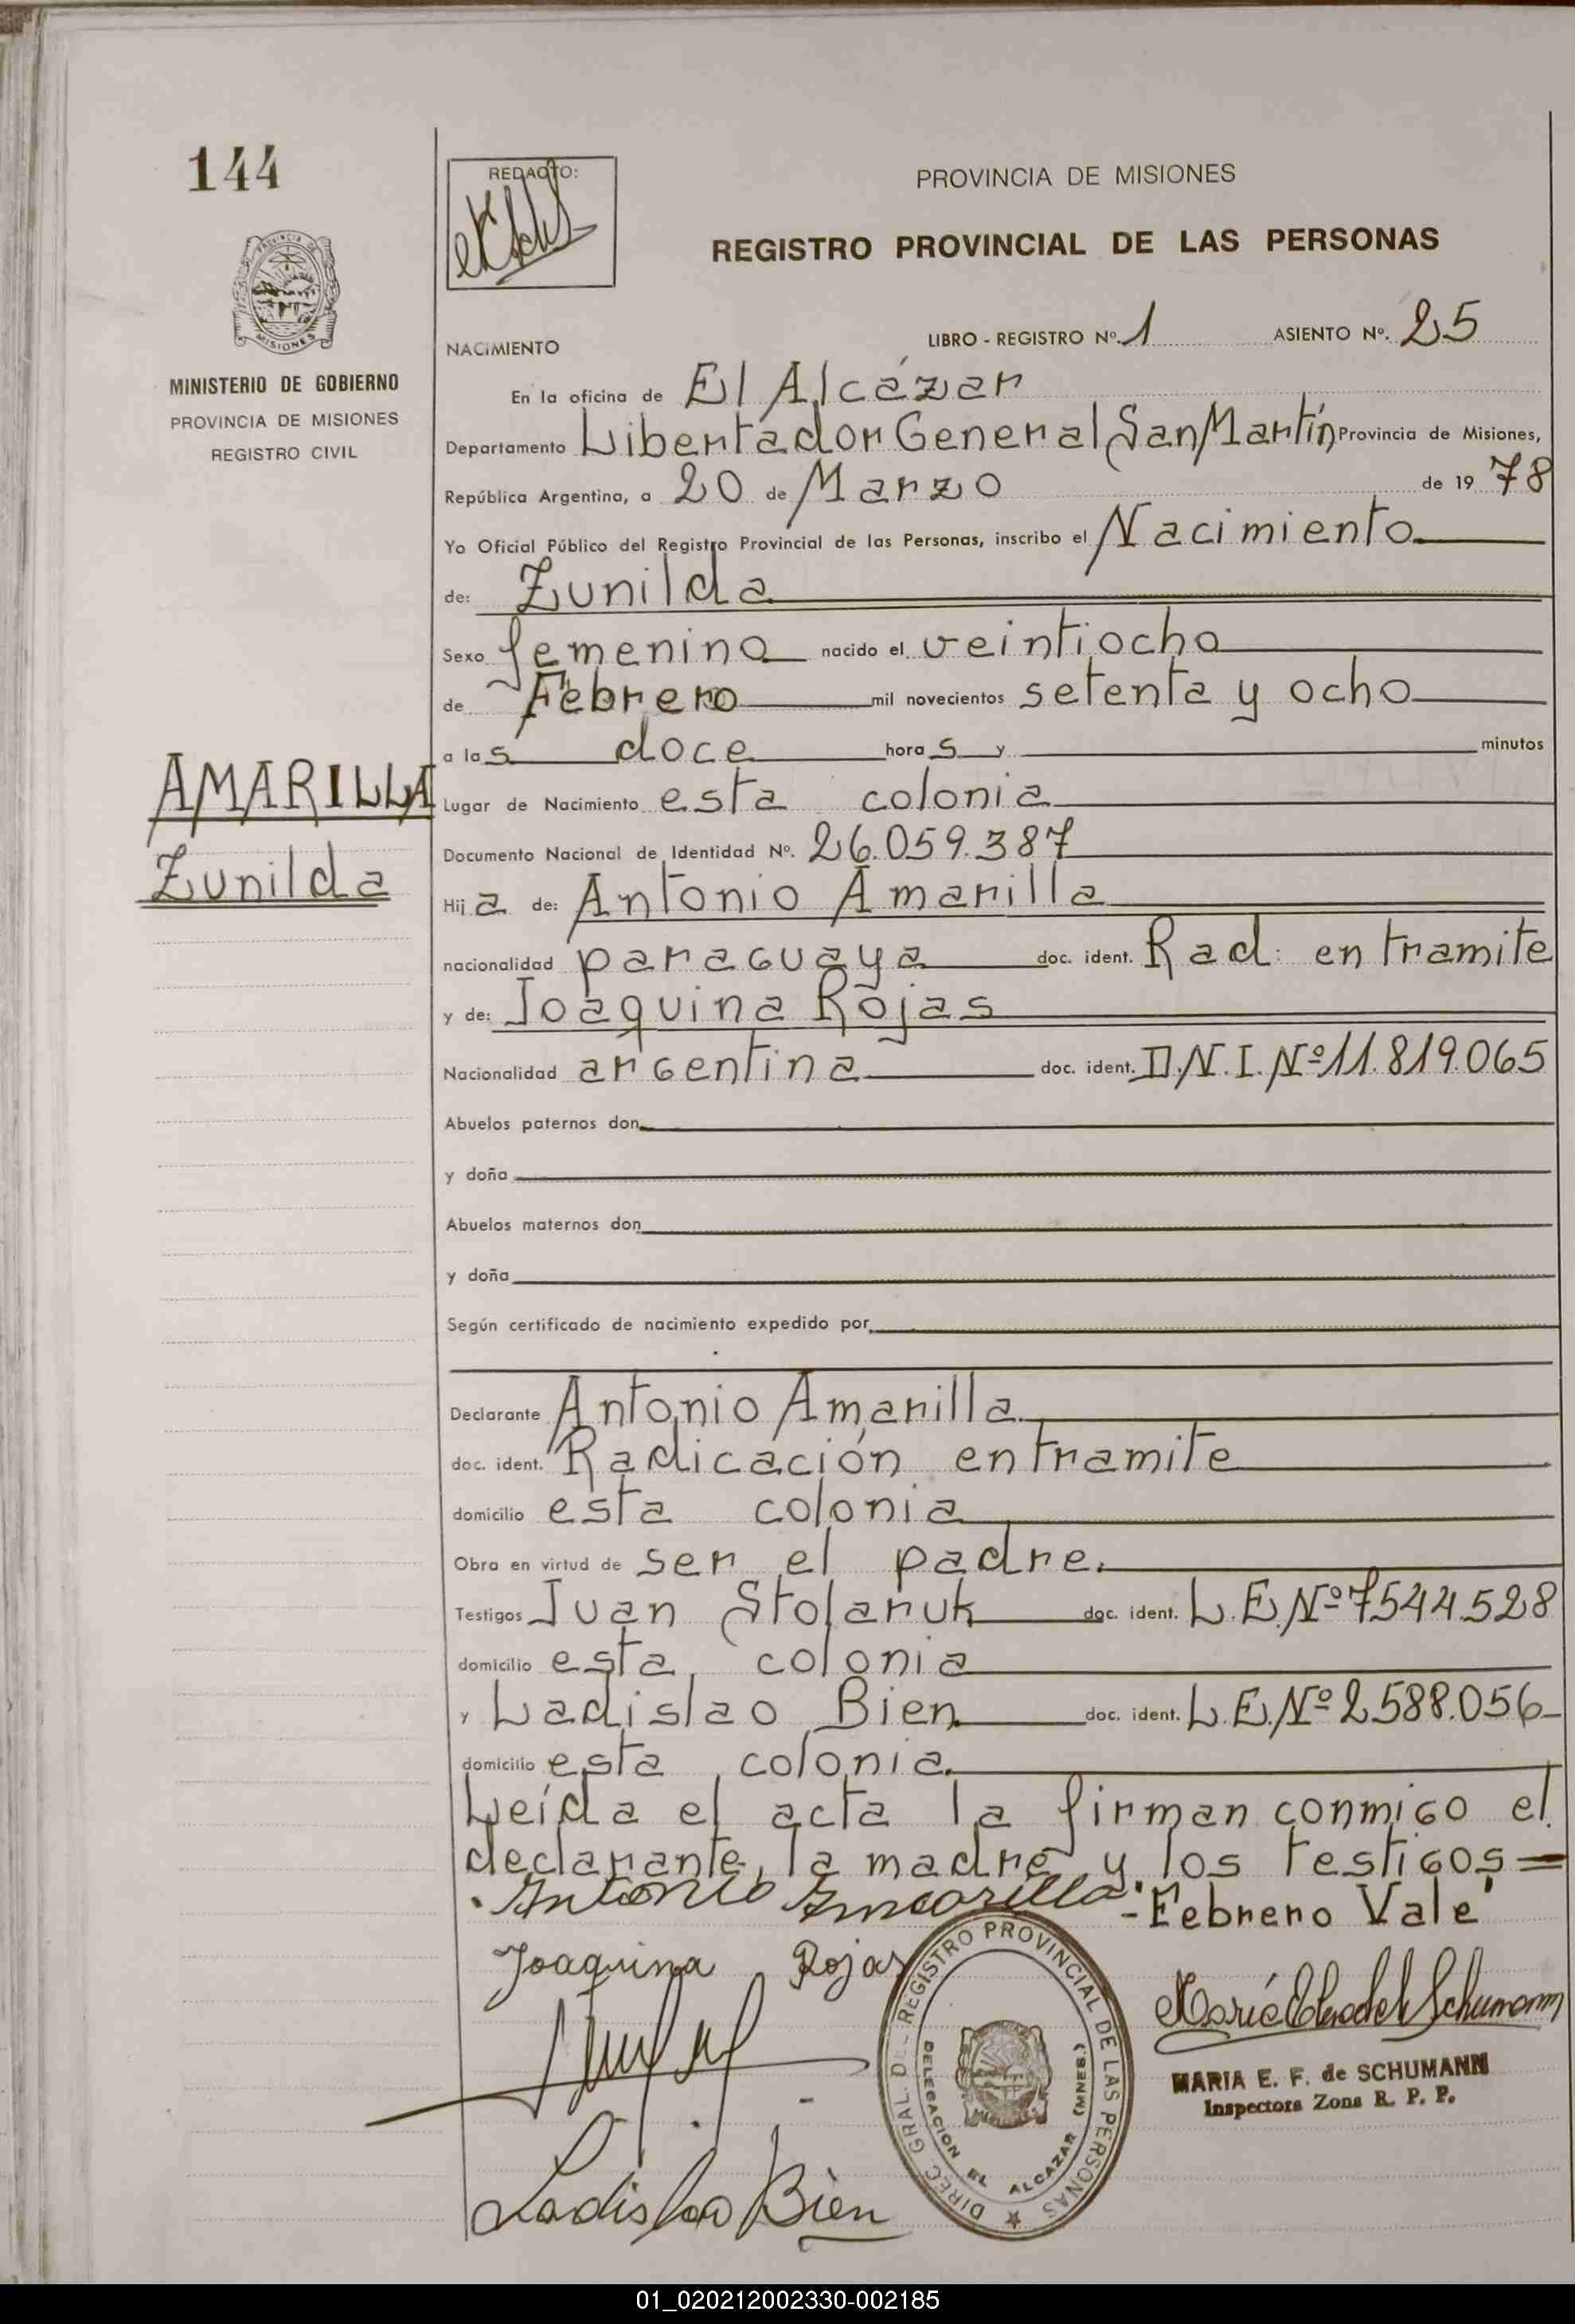 144
REDACTO:
PROVINCIA DE MISIONES
REGISTRO PROVINCIAL DE LAS PERSONAS
PROVINCIA DE
MISIONES
MINISTERIO DE GOBIERNO
PROVINCIA DE MISIONES
REGISTRO CIVIL
NACIMIENTO LIBRO - REGISTRO Nº. 1 ASIENTO Nº. 25
En la oficina de El Alcázar
Departamento Libertador General San Martín Provincia de Misiones,
República Argentina, a 20 de Marzo de 19 78
Yo Oficial Público del Registro Provincial de las Personas, inscribo el Nacimiento
de: Zunilda
Sexo femenino nacido el veintiocho
de Febrero mil novecientos setenta y ocho
a las doce horas y minutos
AMARILLA
Zunilda
Lugar de Nacimiento esta colonia
Documento Nacional de Identidad Nº. 26.059.387
Hija de: Antonio Amarilla
nacionalidad paraguaya doc. ident. Rad: en tramite
y de: Joaquina Rojas
Nacionalidad argentina doc. ident. D.N.I. Nº 11.819.065
Abuelos paternos don
y doña
Abuelos maternos don
y doña
Según certificado de nacimiento expedido por
Declarante Antonio Amarilla
doc. ident. Radicación en tramite
domicilio esta colonia
Obra en virtud de ser el padre.
Testigos Juan Stolaruk doc. ident. L.E. Nº 7544528
domicilio esta colonia
y Ladislao Bien doc. ident. L.E. Nº 2588.056
domicilio esta colonia.
Leída el acta la firman conmigo el
declarante, la madre y los testigos =
Antonio Amarilla - "Febrero Vale"
Joaquina Rojas
DIREC. GRAL. DEL REGISTRO PROVINCIAL DE LAS PERSONAS
DELEGACION EL ALCAZAR (MNES.)
MARIA E. F. de SCHUMANN
Inspectora Zona R. P. P.
Ladislao Bien
01_020212002330-002185